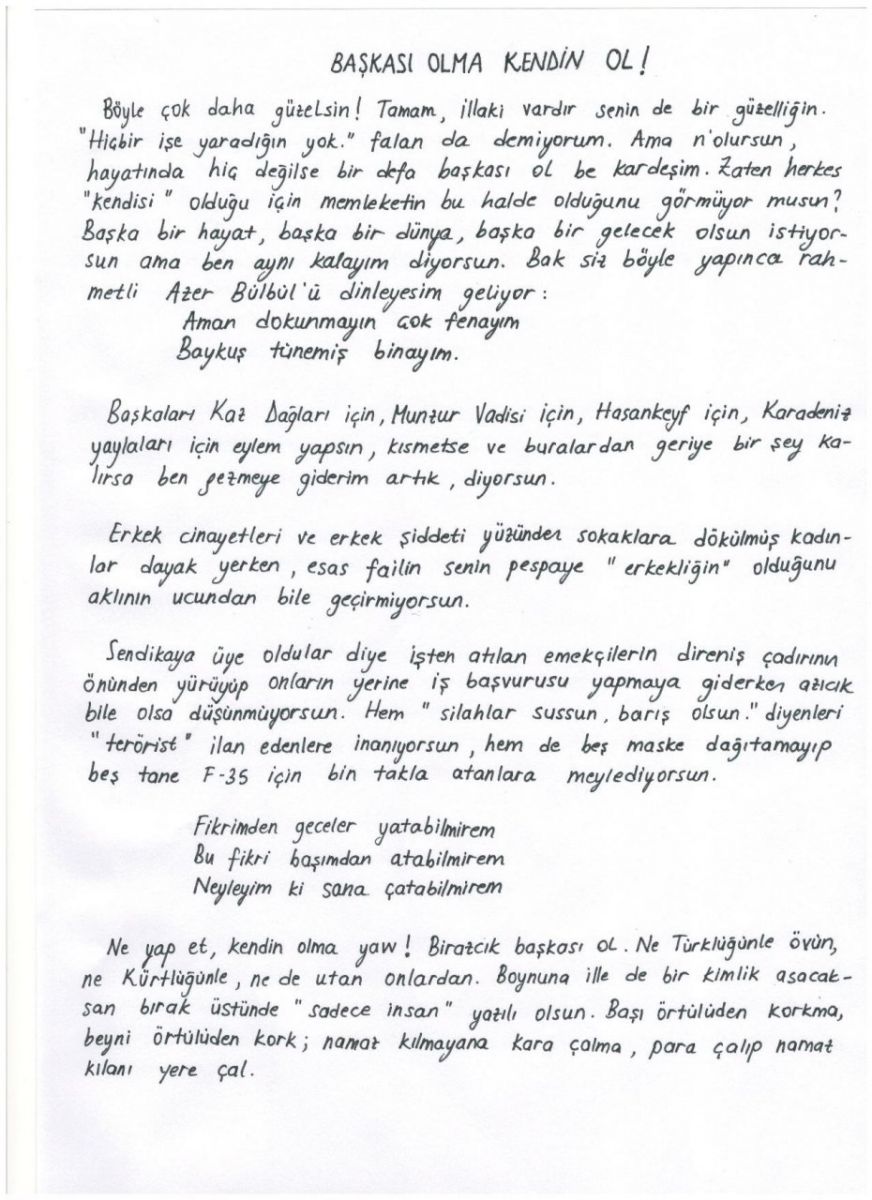 BAŞKASI OLMA KENDİN OL!
Böyle çok daha güzelsin! Tamam, illaki vardır senin de bir güzelliğin.
"Hiçbir işe yaradığın yok." falan da demiyorum. Ama n'olursun,
hayatında hiç değilse bir defa başkası ol be kardeşim. Zaten herkes
"kendisi" olduğu için memleketin bu halde olduğunu görmüyor musun?
Başka bir hayat, başka bir dünya, başka bir gelecek olsun istiyor-
sun ama ben aynı kalayım diyorsun. Bak siz böyle yapınca rah-
metli Azer Bülbül'ü dinleyesim geliyor:
Aman dokunmayın çok fenayım
Baykuş tünemiş binayım.
Başkaları Kaz Dağları için, Munzur Vadisi için, Hasankeyf için, Karadeniz
yaylaları için eylem yapsın, kısmetse ve buralardan geriye bir şey ka-
lırsa ben gezmeye giderim artık, diyorsun.
Erkek cinayetleri ve erkek şiddeti yüzünden sokaklara dökülmüş kadın-
lar dayak yerken, esas failin senin pespaye "erkekliğin" olduğunu
aklının ucundan bile geçirmiyorsun.
Sendikaya üye oldular diye işten atılan emekçilerin direniş çadırının
önünden yürüyüp onların yerine iş başvurusu yapmaya giderken azıcık
bile olsa düşünmüyorsun. Hem "silahlar sussun, barış olsun." diyenleri
"terörist" ilan edenlere inanıyorsun, hem de beş maske dağıtamayıp
beş tane F-35 için bin takla atanlara meylediyorsun.
Fikrimden geceler yatabilmirem
Bu fikri başımdan atabilmirem
Neyleyim ki sana çatabilmirem
Ne yap et, kendin olma yaw! Birazcık başkası ol. Ne Türklüğünle övün,
ne Kürtlüğünle, ne de utan onlardan. Boynuna ille de bir kimlik asacak-
san bırak üstünde "sadece insan" yazılı olsun. Başı örtülüden korkma,
beyni örtülüden kork; namaz kılmayana kara çalma, para çalıp namaz
kılanı yere çal.